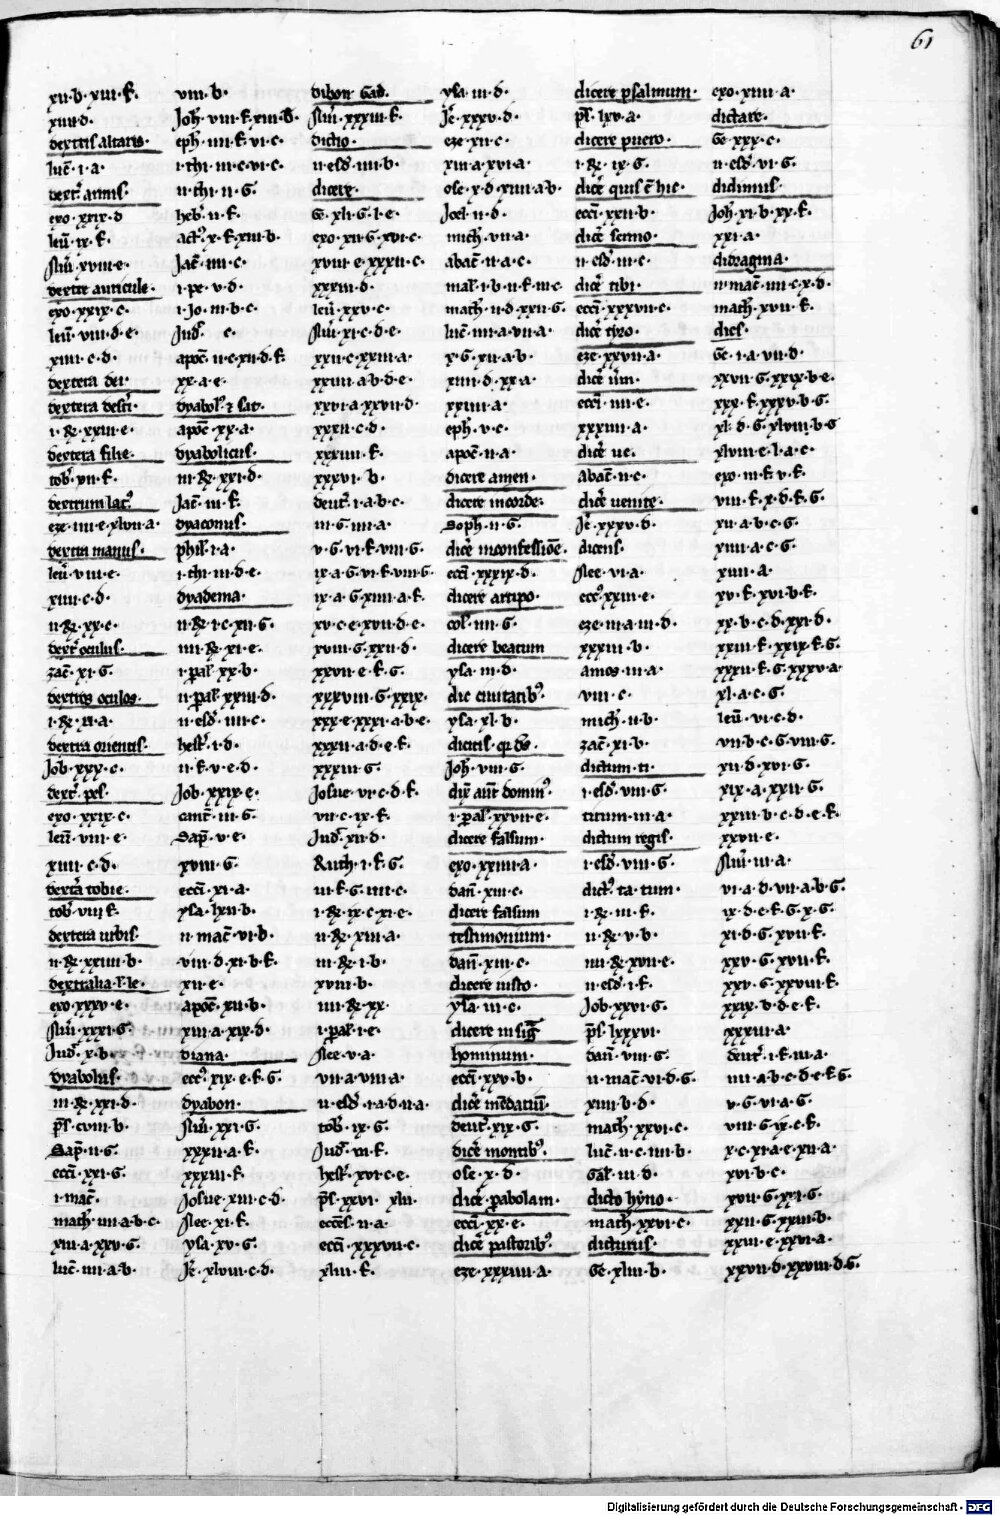 61
xii·b·xiii·f·
xiiii·d·
dextris altaris·
luc̄·i·a·
dext̄· armis·
exo·xxix·d
leu̅·ix·f·
Nu̅i·xviii·e·
dextre auricule·
exo·xxix·c·
leu̅·viii·d·e·
xiiii·c·d·
dextera dei·
dextera desc̄i·
i·R̄·xxiii·e·
dextera filie·
tob̄·xii·f·
dextrum lat̄·
eze·iiii·e·xlvii·a·
dextra manus·
leu̅·viii·e·
xiiii·c·d·
ii·R̄·xx·c·
dext̄ oculus·
zac̄·xi·G·
dextros oculos·
i·R̄·xi·a·
dextra orientis·
Job·xxx·c·
dext̄· pes·
exo·xxix·c·
leu̅·viii·e·
xiiii·c·d·
dextra tobie·
tob̄·viii·f·
dextera urbis·
ii·R̄·xxiiii·b·
dextralia·l·le·
exo·xxxv·e·
Nu̅i·xxxi·G·
Jud̄·x·b·
dyabolus·
iii·R̄·xxi·d·
ps̄·cviii·b·
Sap̄·ii·G·
ecc̄i·xxi·G·
i·mac̄·
math̄·iiii·a·b·c·
xiii·a·xxv·G·
luc̄·iiii·a·b·
viii·b·
Joh̄·viii·f·xiii·d·
eph̄·iiii·f·vi·c·
i·thi·iii·c·vi·c·
ii·thi·ii·G·
heb̄·ii·f·
act̄·x·f·xiii·b·
Jac̄·iiii·c·
i·pe·v·d·
i·Jo·iii·b·c·
Jud̄· c·
apoc̄·ii·c·xii·d·f·
xx·a·e·
dyabol̄·et sat·
apoc̄·xx·a·
dyabolicus·
iii·R̄·xxi·d·
Jac̄·iii·f·
dyaconus·
phil̄·i·a·
i·thi·iii·d·e·
dyadema·
ii·R̄·i·c·xii·G·
iiii·R̄·xi·e·
i·pal̄·xx·b·
ii·pal̄·xxiii·d·
ii·esd̄·iiii·c·
hest̄·i·d·
ii·f·v·e·d·
Job·xxix·e·
cant̄·iii·G·
Sap̄·v·e·
xviii·G·
ecc̄i·xi·a·
ysa·lxii·b·
ii·mac̄·vi·b·
viii·d·xi·b·f·
xii·e·
apoc̄·xii·b·
xiii·a·xix·d·
diana·
ecc̄·xix·e·f·G·
dyabon·
Nu̅i·xxi·G·
xxxii·a·f·
xxxiii·f·
Josue·xiii·c·d·
Nee·xi·f·
ysa·xv·G·
Je̅·xlviii·c·d·
dibon Gad·
Nu̅i·xxxiii·f·
dicho·
ii·esd̄·iiii·b·
dicere·
Ge·xli·G·l·e·
exo·xii·G·xvi·c·
xviii·e·xxxii·c·
xxxiii·d·
leu̅·xxv·c·
Nu̅i·xi·c·d·e·
xxii·c·xxiii·a·
xxiiii·a·b·d·e·
xxvi·a·xxvii·d·
xxxii·c·d·
xxxiiii·f·
xxxvi·b·
deut̄·i·a·b·c·
iii·G·iiii·a·
v·G·vi·f·viii·G·
ix·a·G·vi·f·viii·G·
ix·a·G·xiiii·a·f·
xv·c·e·xvii·d·e·
xviii·G·xxii·d·
xxvii·e·f·G·
xxxviii·G·xxix·
xxx·e·xxxi·a·b·e·
xxxii·a·d·e·f·
xxxiii·G·
Josue·vi·c·d·f·
vii·c·ix·f·
Jud̄·xii·d·
Ruth·i·f·G·
iii·f·G·iiii·c·
i·R̄·ix·c·xi·e·
ii·R̄·xiii·a·
iii·R̄·i·b·
xviii·b·
iiii·R̄·xx·
i·pal̄·i·e·
Nee·v·a·
vii·a·viii·a·
ii·esd̄·i·a·d·ii·a·
tob̄·ix·G·
Jud̄·vi·f·
hest̄·xvi·c·e·
ps̄·xxvi· xlii·
ecc̄s·ii·a·
ecc̄i·xxxvii·c·
xliii·f·
ysa·iii·d·
Je̅·xxxv·d·
eze·xii·c·
xiii·a·xvi·a·
ose·x·d·xiii·a·b·
Joel·ii·d·
mich̄·vii·a·
abac̄·ii·a·c·
mal̄·i·b·ii·f·iii·c·
math̄·ii·d·xxii·G·
luc̄·iiii·a·vii·a·
x·G·xii·a·b·
xiiii·d·xx·a·
xxiiii·a·
eph̄·v·c·
apoc̄·ii·a·
dicere amen·
dicere in corde·
Soph̄·ii·G·
dice̅ in confessio̅e·
ecc̄i·xxxix·d·
dicere artipo·
col̄·iiii·G·
dicere beatum
ysa·iii·d·
dic civitatib⁹·
ysa·xl·b·
dicitis· q̄ d̄s·
Joh̄·viii·G·
dix̄ au̅t domin⁹·
i·pal̄·xxvii·e·
dicere falsum·
exo·xxiiii·a·
dan̄·xiii·c·
dicere falsum
testimonium·
dan̄·xiii·c·
dicere iusto·
ysa·iii·c·
dicere in sig̅
hominum·
ecc̄i·xxv·b·
dice̅ me̅daciu̅·
deut̄·xix·G·
dice̅ montib⁹·
ose·x·d·
dice̅ pabolam·
ecc̄i·xx·e·
dice̅ pastorib⁹·
eze·xxxiiii·a·
dicere psalmum·
ps̄·lxv·a·
dicere puero·
i·R̄·ix·G·
dice̅ quis e̅ hic·
ecc̄i·xxii·b·
dice̅ sermo·
ii·esd̄·iii·c·
dice̅ tibi·
ecc̄i·xxxvii·c·
dice̅ tyro·
eze·xxvii·a·
dice̅ u̅m·
ecc̄i·iiii·e·
xxxiiii·a·
dice̅ ve·
abac̄·ii·c·
dice̅ venite·
Je̅·xxxv·d·
dicens·
Nee·vi·a·
ecc̄·xxiii·e·
eze·iii·a·iii·d·
xxxiii·b·
amos·iii·a·
viii·c·
mich̄·ii·b·
zac̄·xi·b·
dictum·ti·
i·esd̄·viii·G·
titum·iii·a·
dictum regis·
i·esd̄·viii·G·
dict̄·ta·tum·
i·R̄·iii·f·
ii·R̄·v·b·
iiii·R̄·xvii·e·
ii·esd̄·i·f·
Job·xxvi·G·
ps̄·lxxxvi·
dan̄·viii·G·
ii·mac̄·vi·d·G·
xiiii·b·d·
math̄·xxvi·c·
luc̄·ii·c·iiii·b·
Gal̄·iii·d·
dicto hy̅no·
math̄·xxvi·c·
dicturus·
Ge·xliii·b·
exo·xiiii·a·
dictare·
Ge·xxx·c·
ii·esd̄·vi·G·
didimus·
Joh̄·xi·b·xx·f·
xxi·a·
didragma·
ii·mac̄·iiii·c·x·d·
math̄·xvii·f·
dies·
Ge̅·i·a·vii·d·
xxvii·G·xxix·b·e·
xxx·f·xxxv·b·G·
xl·d·G·xlviii·b·G
xlviii·c·l·a·c·
exo·iii·f·v·f·
viii·f·x·d·f·G·
xii·a·b·c·G·
xiiii·a·c·G·
xvii·a·
xv·f·xvi·b·f·
xx·b·c·d·xxi·d·
xxiii·f·xxix·f·G·
xxxii·f·G·xxxv·a·
xl·a·c·G·
leu̅·vi·c·d·
vii·b·c·G·viii·G·
xii·d·xvi·G·
xix·a·xxii·G·
xxiii·b·c·d·e·f·
xxvii·e·
Nu̅i·iii·a·
vi·a·d·vii·a·b·G·
ix·d·e·f·G·x·G·
xi·d·G·xvii·f·
xxv·G·xvii·f·
xxv·G·xxviii·f·
xxix·b·d·e·f·
xxxiii·a·
deut̄·i·f·iii·a·
iiii·a·b·c·d·e·f·G·
v·G·vi·a·G·
viii·G·ix·c·f·
x·c·xi·a·e·xii·a·
xvi·b·c·
xvii·G·xxi·G·
xxii·G·xxiii·b·
xxiii·e·xxvi·a·
xxvii·d·xxviii·d·G·
Digitalisierung gefördert durch die Deutsche Forschungsgemeinschaft · DFG